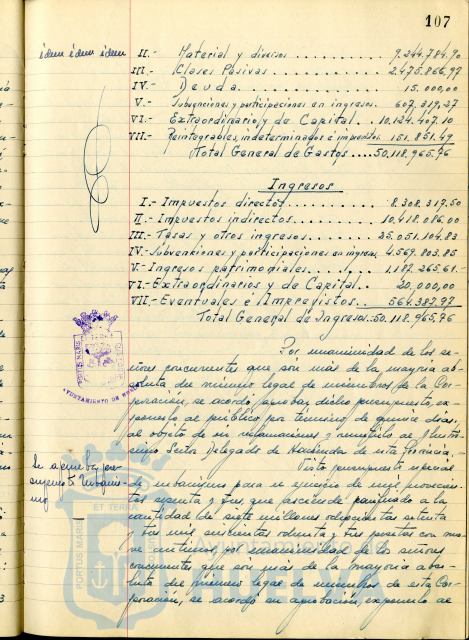 107
idem idem idem
II.- Material y diversos ........ 9.244.784.90
III.- Clases Pasivas ........ 2.475.866,97
IV.- Deuda ........ 15.000,00
V.- Subvenciones y participaciones en ingresos. 607.319,37
VI.- Extraordinario y de Capital .. 10.124.407.10
VII.- Reintegrables, indeterminados e imprevistos 151.851.49
Total General de Gastos .... 50.118.965.76
Ingresos
I.- Impuestos directos ........ 8.308.317.50
II.- Impuestos indirectos ........ 10.418.086.00
III.- Tasas y otros ingresos ........ 25.051.104.83
IV.- Subvenciones y participaciones en ingresos 4.569.803.85
V.- Ingresos patrimoniales ........ 1.187.265.61.
VI.- Extraordinarios y de Capital .. 20,000,00
VII.- Eventuales e Imprevistos .. 564.387.97
Total General de Ingresos. 50.118.965,76
Por unanimidad de los se-
ñores concurrentes que son más de la mayoría ab-
soluta del número legal de miembros de la Cor-
poración, se acordó aprobar dicho presupuesto, ex-
ponerlo al público por término de quince días,
al objeto de oir reclamaciones y remitirlo al Ilustrí-
simo Señor Delegado de Hacienda de esta Provincia.
Se aprueba pre-
supuesto Urbanis-
mo
Visto presupuesto especial
de urbanismo para el ejercicio de mil novecien-
tos sesenta y tres, que asciende nivelado a la
cantidad de siete millones setenta
y tres mil ochenta y tres pesetas con nue-
ve céntimos, por unanimidad de los señores
concurrentes que son más de la mayoría abso-
luta del número legal de miembros de esta Cor-
poración, se acordó su aprobación, exponerlo al
PORTUS MARIS
AYUNTAMIENTO DE HUELVA
ET TERRA
PORTUS MARIS
Ayuntamiento de
HUELVA